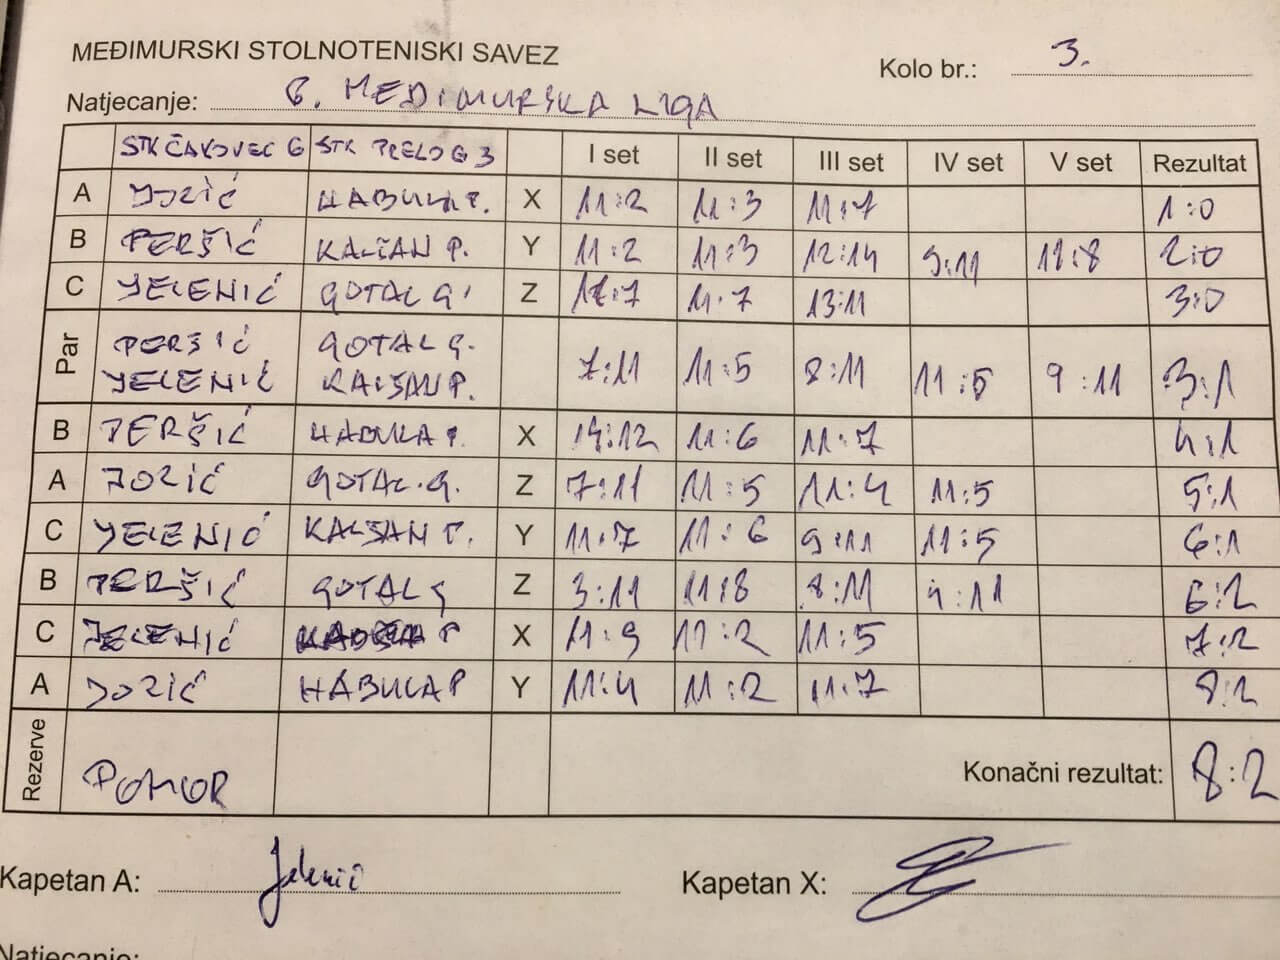 MEĐIMURSKI STOLNOTENISKI SAVEZ
Kolo br.: 3.
Natjecanje: 6. MEĐIMURSKA LIGA
STK ČAKOVEC 6 STK PRELOG 3 I set II set III set IV set V set Rezultat
A JOZIĆ HABULA P. X 11:2 11:3 11:7 1:0
B PERŠIĆ KALŠAN P. Y 11:2 11:3 12:14 9:11 11:8 2:0
C JELENIĆ GOTAL G. Z 11:7 11:7 13:11 3:0
Par PERŠIĆ GOTAL G.
JELENIĆ KALŠAN P. 7:11 11:5 8:11 11:5 9:11 3:1
B PERŠIĆ HABULA P. X 14:12 11:6 11:7 4:1
A JOZIĆ GOTAL.G. Z 7:11 11:5 11:4 11:5 5:1
C JELENIĆ KALŠAN P. Y 11:7 11:6 9:11 11:5 6:1
B PERŠIĆ GOTAL G Z 3:11 11:8 8:11 4:11 6:2
C JELENIĆ P X 11:9 11:2 11:5 7:2
A JOZIĆ HABULA P Y 11:4 11:2 11:7 8:2
Rezerve POMOR Konačni rezultat: 8:2
Kapetan A: Jelenić Kapetan X:
Natjecanje: